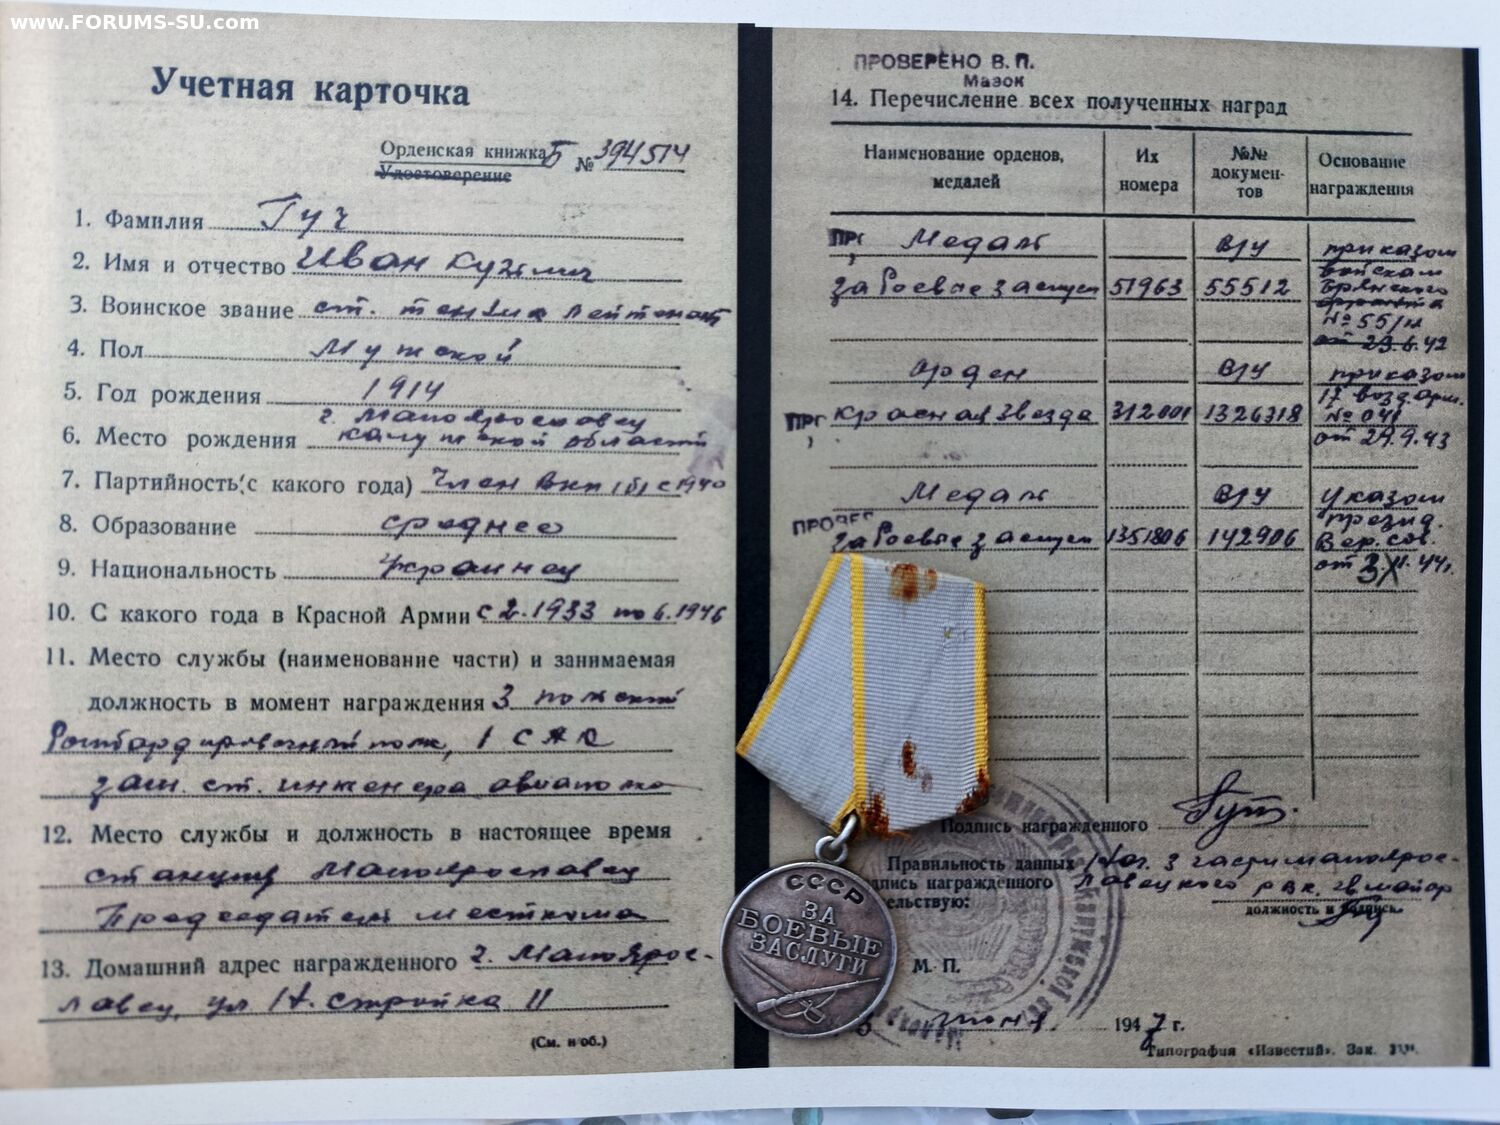 www.FORUMS-SU.com
Учетная карточка
Орденская книжка Б № 394514
Удостоверение
1. Фамилия Гуч
2. Имя и отчество Иван Кузьмич
3. Воинское звание ст. техник лейтенант
4. Пол Мужской
5. Год рождения 1914
г. Малоярославец
6. Место рождения калужской области
7. Партийность (с какого года) Член ВКП(б) с 1940
8. Образование среднее
9. Национальность Украинец
10. С какого года в Красной Армии с 2.1933 по 6.1946
11. Место службы (наименование части) и занимаемая
должность в момент награждения 3
полк, 1 САК
зам. ст. инженера авиаполка
12. Место службы и должность в настоящее время
станция Малоярославец
Председатель месткома
13. Домашний адрес награжденного г. Малоярос-
лавец, ул стройка 11
(См. н об.)
ПРОВЕРЕНО В. П.
Мазок
14. Перечисление всех полученных наград
Наименование орденов, медалей
Их номера
№№ документов
Основание награждения
Медаль В/у приказом
войскам
за боевые заслуги 51963 55512 Брянского
фронта
№ 55/н
от 23.6.42
орден В/у приказом
17 возд. арм.
Красная Звезда 312001 1326318 № 041
от 29.9.43
Медаль В/у Указом
през​ид.
за боевые заслуги 1351806 142906 Вер. сов.
от 3.XI.44г.
Подпись награжденного
Правильность данных Нач. 3 части Малоярос-
пись награжденного лавецкого рвк. гв майор
ельствую:
должность и подпись
М. П.
июня 1947 г.
Типография «Известий». Зак.
СССР
ЗА
БОЕВЫЕ
ЗАСЛУГИ